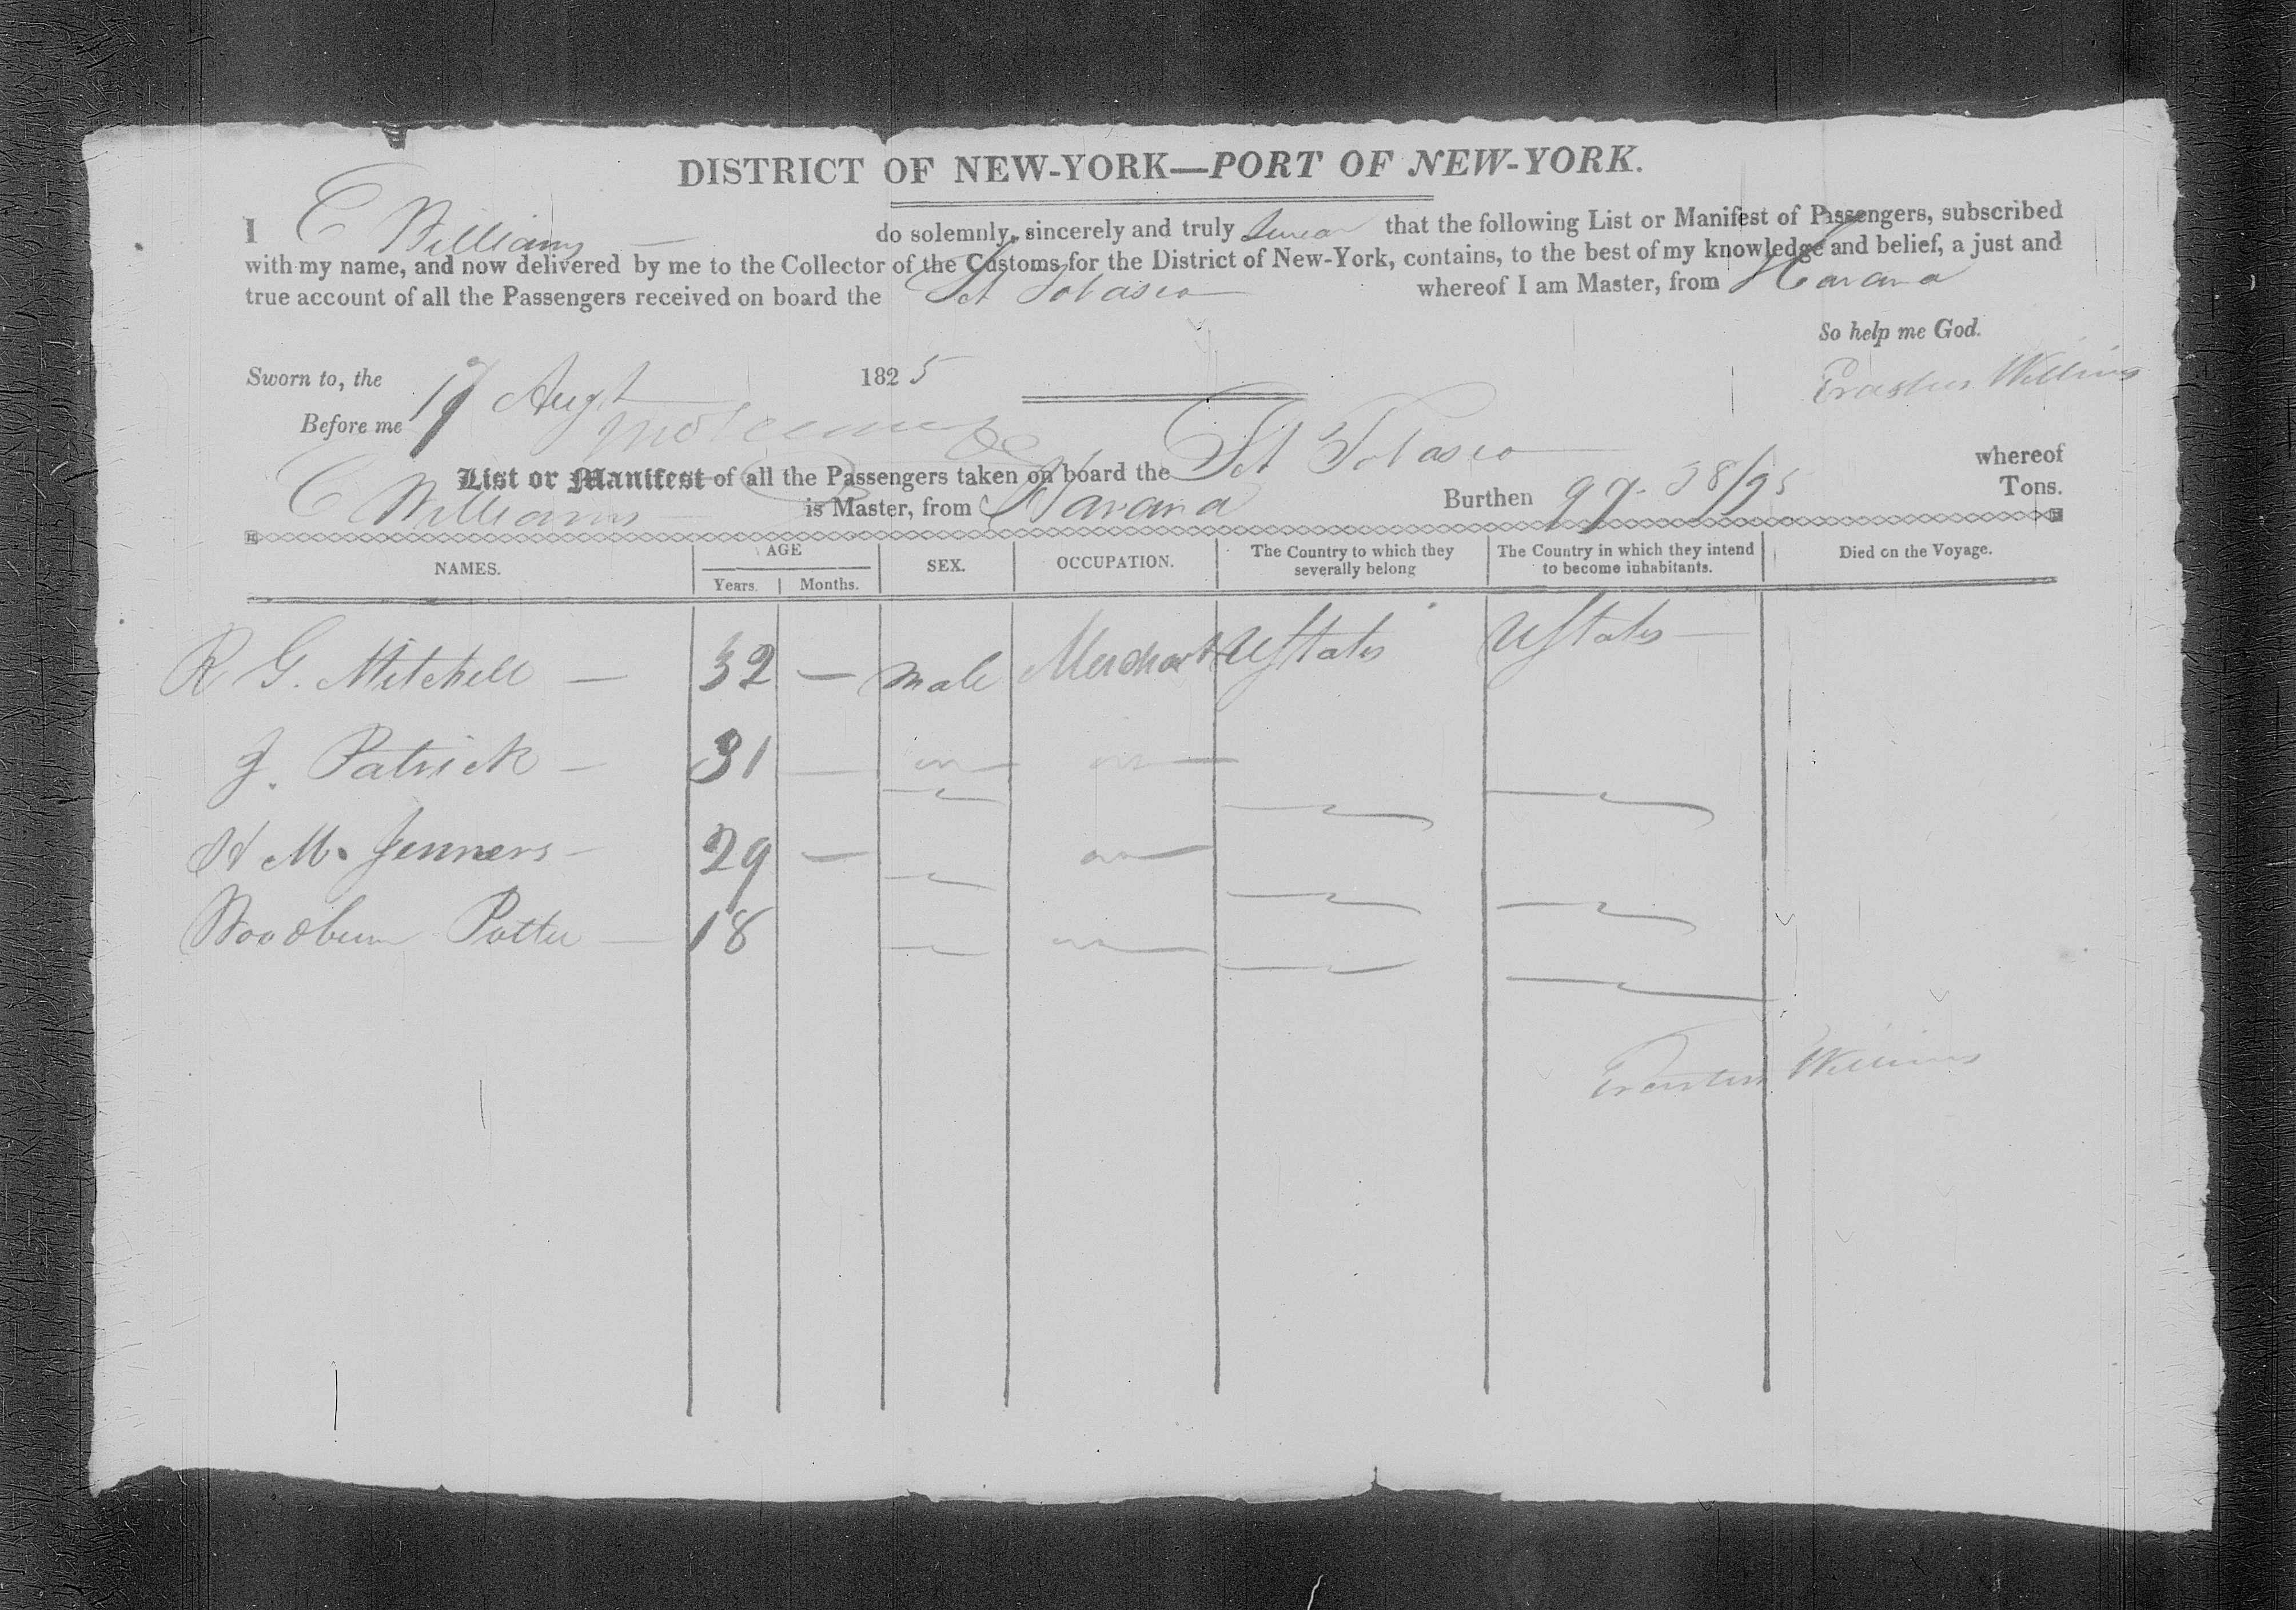 DISTRICT OF NEW-YORK—PORT OF NEW-YORK.
I E Williams — do solemnly, sincerely and truly swear that the following List or Manifest of Passengers, subscribed
with my name, and now delivered by me to the Collector of the Customs for the District of New-York, contains, to the best of my knowledge and belief, a just and
true account of all the Passengers received on board the Sch Tobasco whereof I am Master, from Havana
So help me God.
Sworn to, the 17 Augt 1825
Erastus Williams
Before me
List or Manifest of all the Passengers taken on board the Sch Tobasco whereof
E Williams is Master, from Havana Burthen 97 38/95 Tons.
NAMES. AGE SEX. OCCUPATION. The Country to which they severally belong The Country in which they intend to become inhabitants. Died on the Voyage.
Years. Months.
R G. Mitchell — 32 — male Merchant UStates UStates —
J. Patrick — 31 —
H M. Jenners — 29 —
Woodburn Potter — 18
Erastus Williams